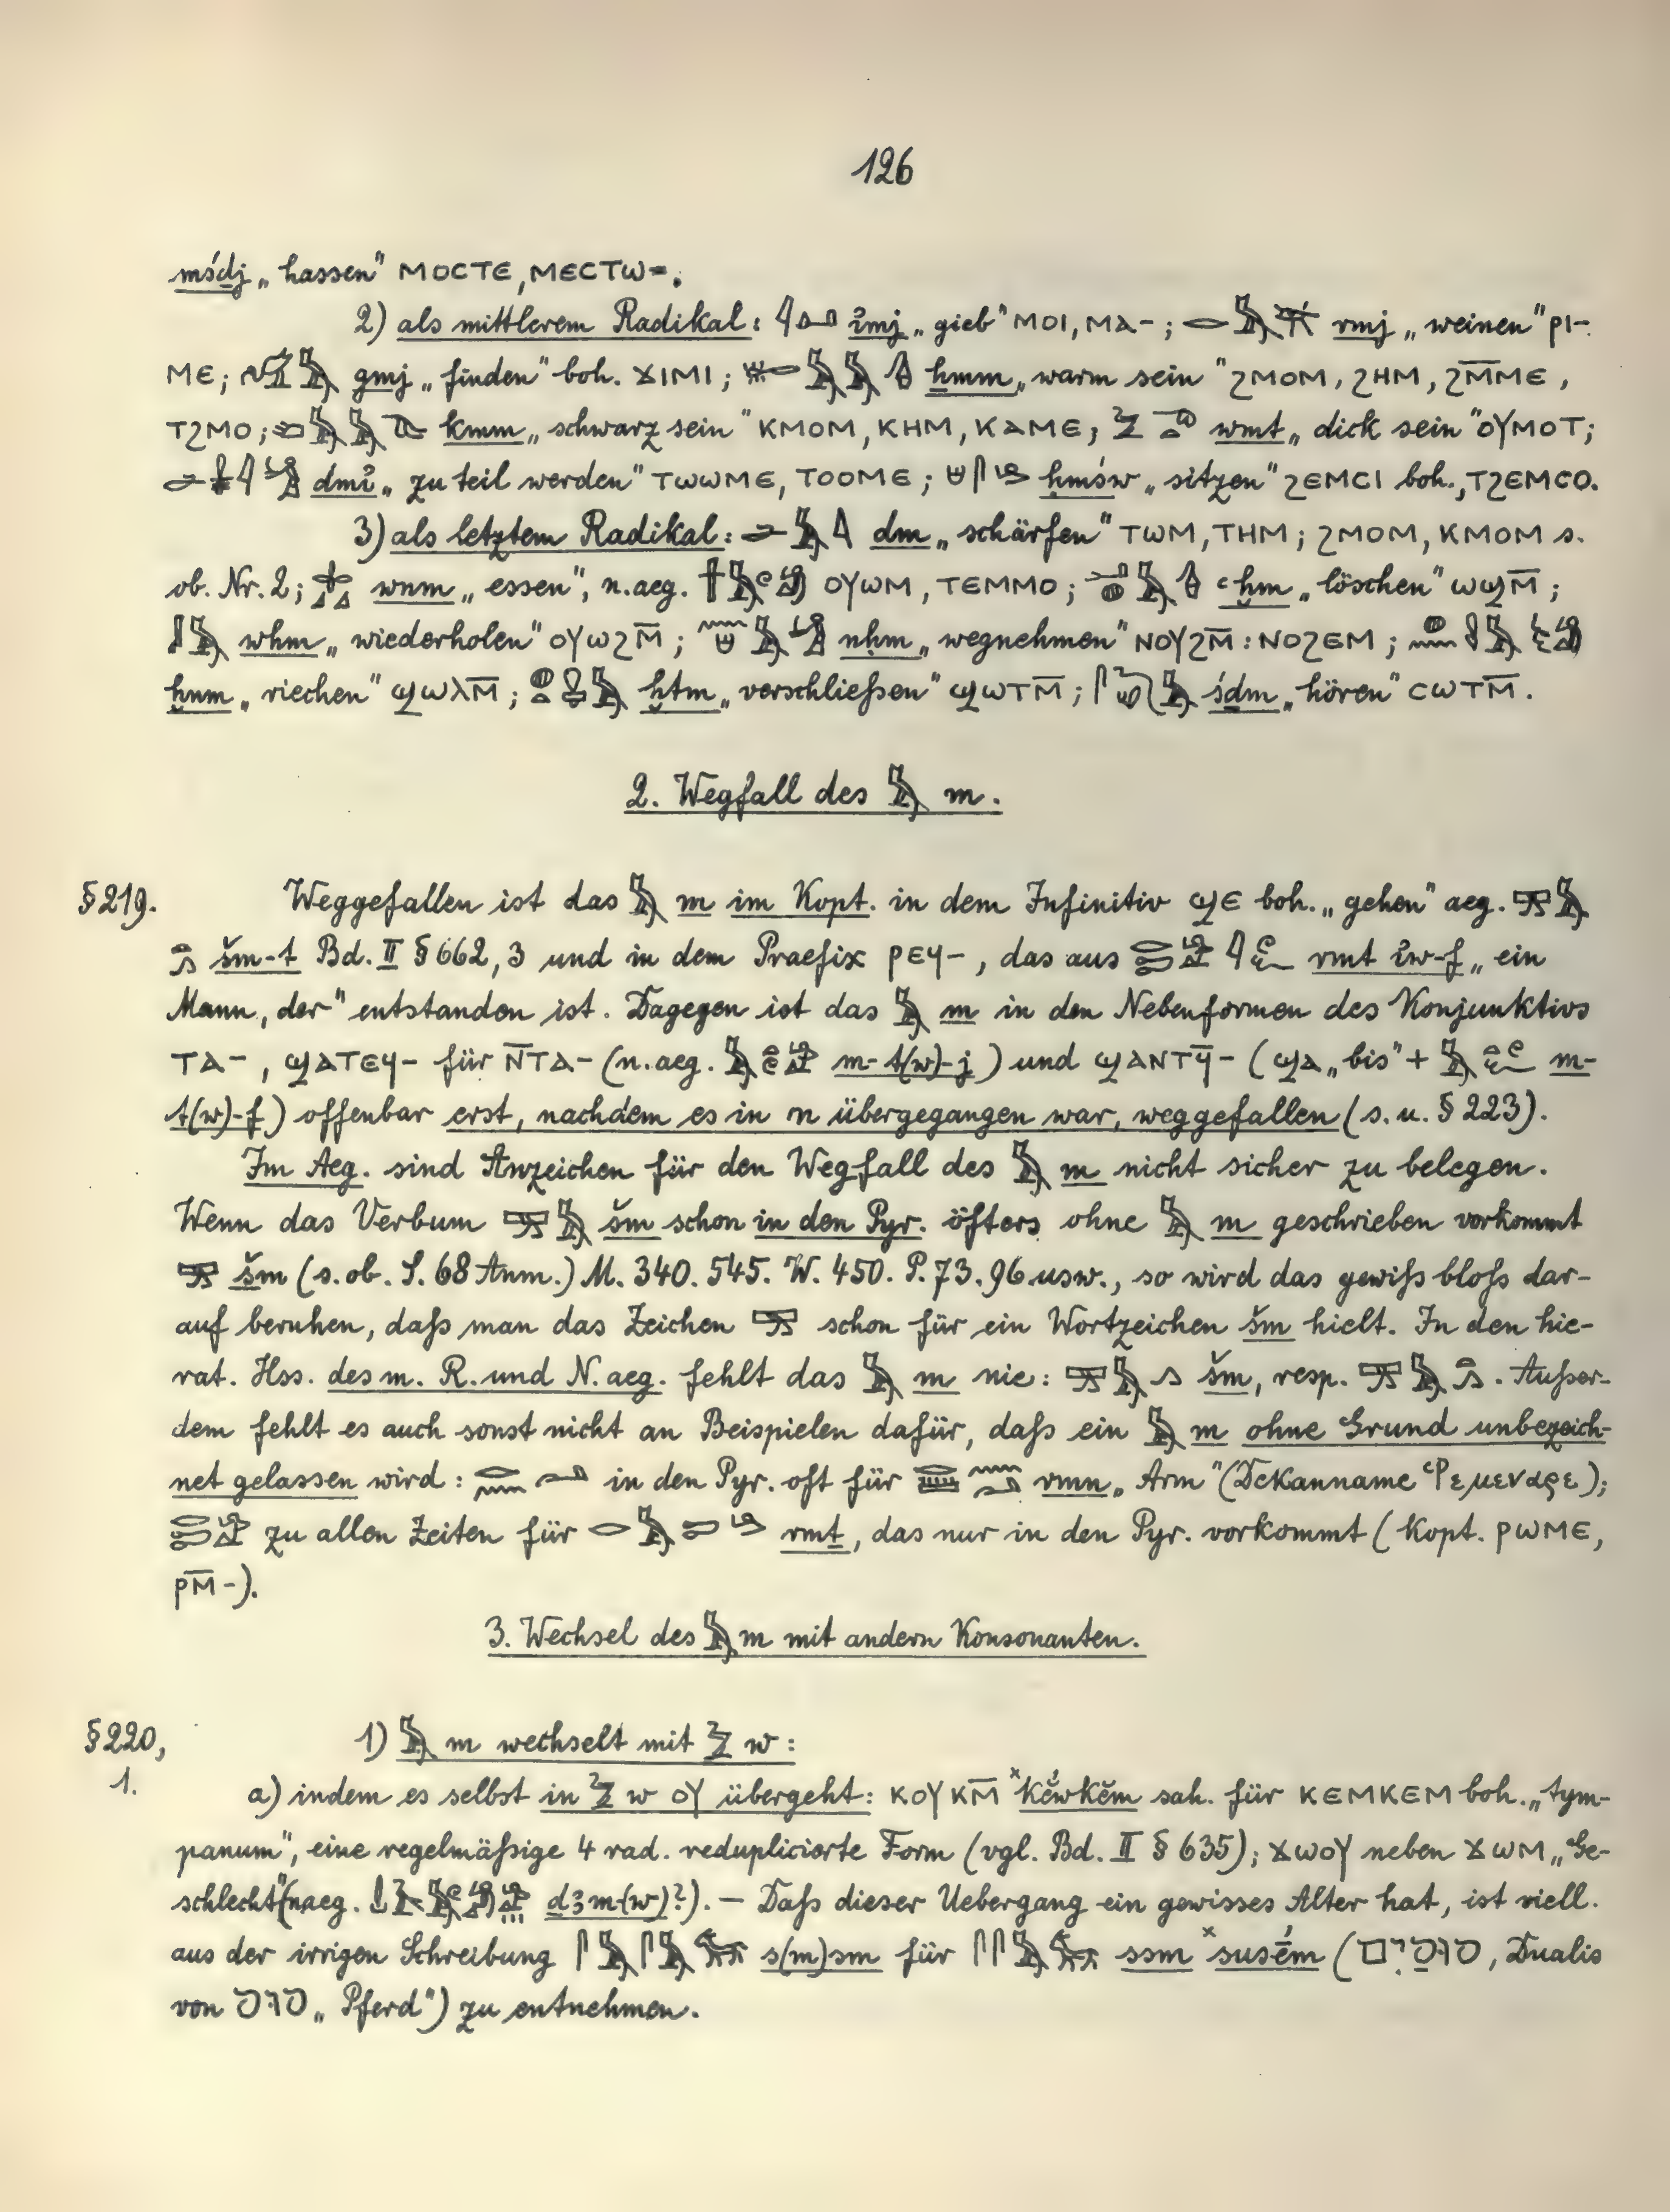 126
mśḏj „hassen" ⲙⲟⲥⲧⲉ, ⲙⲉⲥⲧⲱ=.
2) als mittlerem Radikal: 𓇋𓐛𓂝 imj „gieb" ⲙⲟⲓ, ⲙⲁ-; 𓂋𓅓 rmj „weinen" ⲣⲓ-
ⲙⲉ; 𓅓 gmj „finden" boh. ϫⲓⲙⲓ; 𓅓𓅓𓊮 ḫmm „warm sein" ϩⲙⲟⲙ, ϩⲏⲙ, ϩⲙ̅ⲙⲉ,
ⲧϩⲙⲟ; 𓅓𓅓 kmm „schwarz sein" ⲕⲙⲟⲙ, ⲕⲏⲙ, ⲕⲁⲙⲉ; 𓅱 wmt „dick sein" ⲟⲩⲙⲟⲧ;
dmi̓ „zu teil werden" ⲧⲱⲱⲙⲉ, ⲧⲟⲟⲙⲉ; ḥmśw „sitzen" ϩⲉⲙⲥⲓ boh., ⲧϩⲉⲙⲥⲟ.
3) als letztem Radikal: 𓂧𓅓 dm „schärfen" ⲧⲱⲙ, ⲧⲏⲙ; ϩⲙⲟⲙ, ⲕⲙⲟⲙ s.
ob. Nr. 2; wnm „essen", n.aeg. ⲟⲩⲱⲙ, ⲧⲉⲙⲙⲟ; 𓂝𓐍𓅓𓊮 ꜥḫm „löschen" ⲱϣⲙ̅;
𓅓 wḥm „wiederholen" ⲟⲩⲱϩⲙ̅; 𓅓 nḥm „wegnehmen" ⲛⲟⲩϩⲙ̅ : ⲛⲟϩⲉⲙ;
ḫnm „riechen" ϣⲱⲗⲙ̅; 𓐍𓅓 ḫtm „verschließen" ϣⲱⲧⲙ̅; 𓅓 śḏm „hören" ⲥⲱⲧⲙ̅.
2. Wegfall des 𓅓 m.
§219. Weggefallen ist das 𓅓 m im Kopt. in dem Infinitiv ϣⲉ boh. „gehen" aeg. 𓈙𓅓
šm-t Bd. II § 662, 3 und in dem Praefix ⲣⲉϥ-, das aus rmṯ i̓w-f „ein
Mann, der" entstanden ist. Dagegen ist das 𓅓 m in den Nebenformen des Konjunktivs
ⲧⲁ-, ϣⲁⲧⲉϥ- für ⲛ̅ⲧⲁ- (n.aeg. 𓅓 m-t(w)-j) und ϣⲁⲛⲧϥ̅- (ϣⲁ „bis" + 𓅓 m-
t(w)-f) offenbar erst, nachdem es in n übergegangen war, weggefallen (s. u. § 223).
Im Aeg. sind Anzeichen für den Wegfall des 𓅓 m nicht sicher zu belegen.
Wenn das Verbum 𓈙𓅓 šm schon in den Pyr. öfters ohne 𓅓 m geschrieben vorkommt
šm (s. ob. S. 68 Anm.) M. 340. 545. W. 450. P. 73. 96 usw., so wird das gewiß bloß dar-
auf beruhen, daß man das Zeichen schon für ein Wortzeichen šm hielt. In den hie-
rat. Hss. des m. R. und N.aeg. fehlt das 𓅓 m nie: 𓅓𓂻 šm, resp. 𓅓𓏏𓂻. Außer-
dem fehlt es auch sonst nicht an Beispielen dafür, daß ein 𓅓 m ohne Grund unbezeich-
net gelassen wird: 𓂋𓈖𓂝 in den Pyr. oft für 𓂋𓏠𓈖𓂝 rmn „Arm" (Dekanname Ῥεμεναρε);
zu allen Zeiten für 𓂋𓅓𓍿 rmṯ, das nur in den Pyr. vorkommt (kopt. ⲣⲱⲙⲉ,
ⲣⲙ̅-).
3. Wechsel des 𓅓 m mit andern Konsonanten.
§220, 1) 𓅓 m wechselt mit 𓅱 w:
1. a) indem es selbst in 𓅱 w ⲟⲩ übergeht: ⲕⲟⲩⲕⲙ̅ ˣkĕ́wkĕm sah. für ⲕⲉⲙⲕⲉⲙ boh. „tym-
panum", eine regelmäßige 4 rad. reduplicierte Form (vgl. Bd. II § 635); ϫⲱⲟⲩ neben ϫⲱⲙ „Ge-
schlecht" (naeg. ḏꜣm(w)?). — Daß dieser Uebergang ein gewisses Alter hat, ist viell.
aus der irrigen Schreibung 𓋴𓅓𓋴𓅓𓃗 s(m)sm für 𓋴𓋴𓅓𓃗 ssm ˣsusḗm (סוּסִים, Dualis
von סוס „Pferd") zu entnehmen.